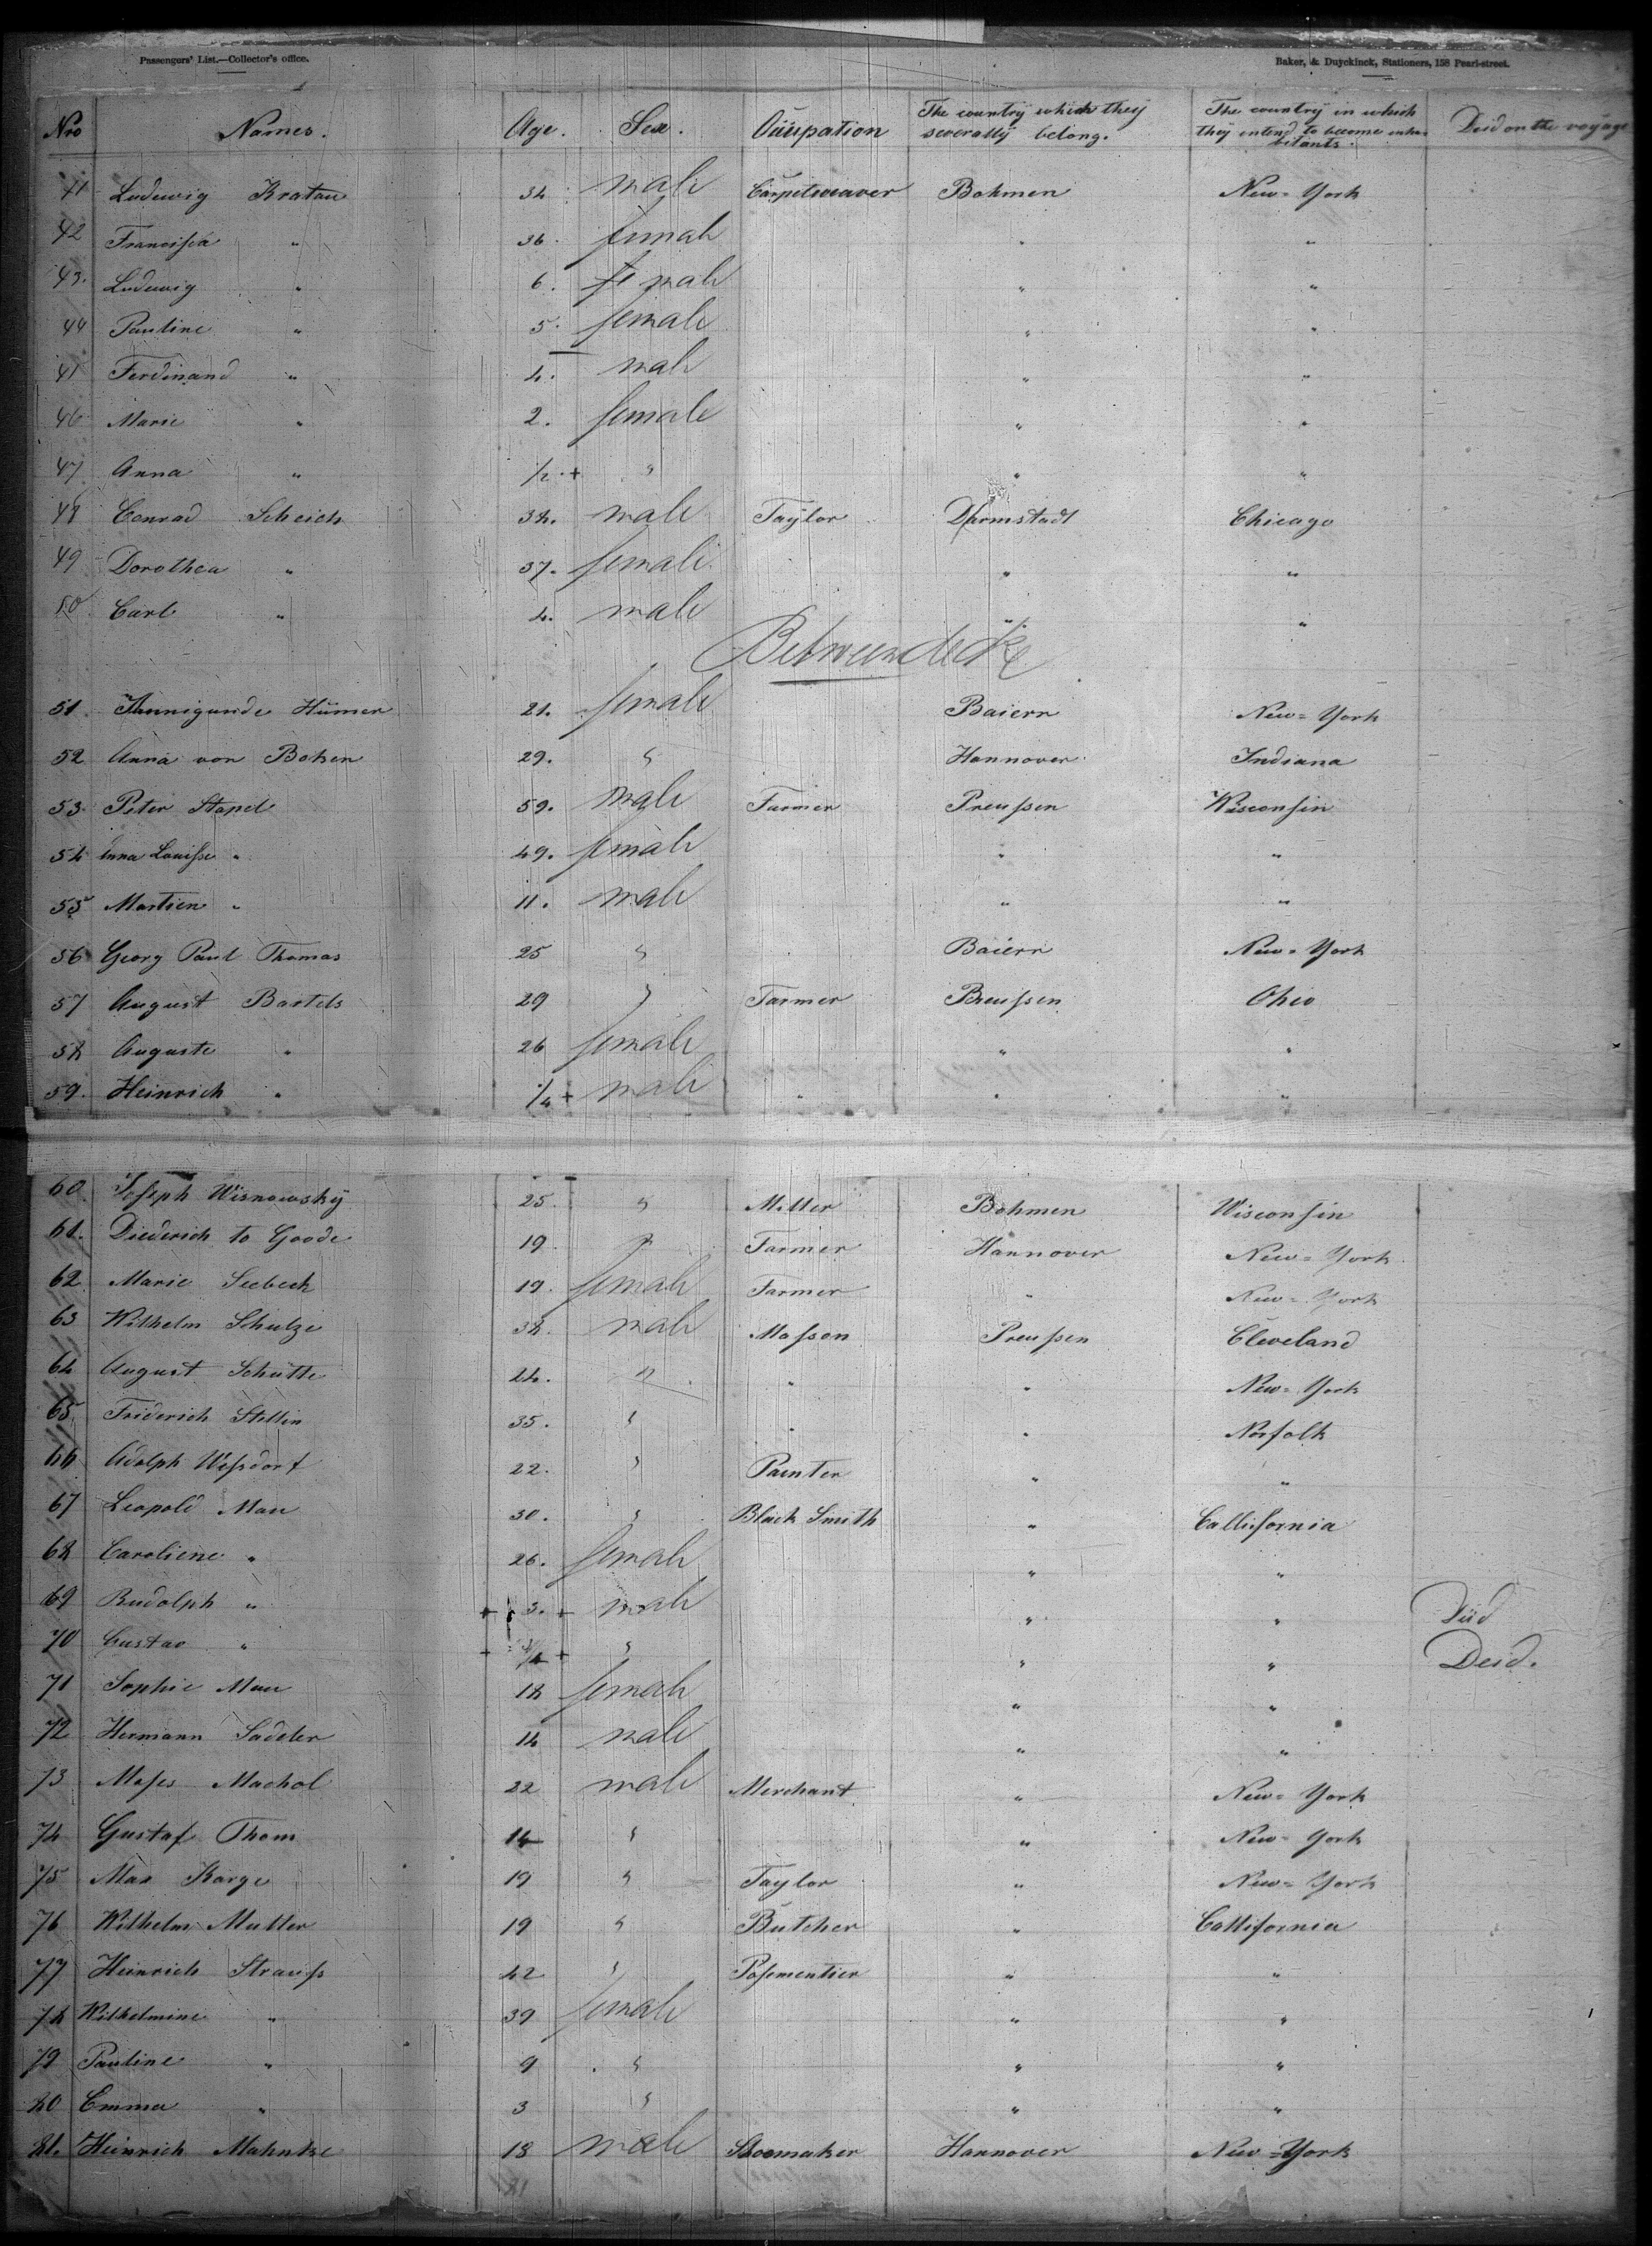 Passengers' List.—Collector's office.
Baker, & Duyckinck, Stationers, 158 Pearl-street.
Nro Names. Age. Sex. Ocüpation The country which they severally belong. The country in which they intend to become inhabitants. Deid on the voyage
41 Ludewig Kratau 34 male Carpetweaver Bohmen New=York
42 Francisca " 36. female " "
43. Ludewig " 6. male " "
44 Pauline " 5. female " "
45 Ferdinand " 4. male " "
46 Marie " 2. female " "
47 Anna " 1/2 + " " "
48 Conrad Scheich 34. male Taylor Darmstadt Chicago
49 Dorothea " 37. female " "
50 Carl " 4. male " "
Betweendeck
51. Kunnigunde Hümer 21. female Baiern New=York
52 Anna von Boken 29. " Hannover Indiana
53. Peter Stapel 59. male Farmer Preussen Wisconsin
54 Anna Louisse " 49. female " "
55 Martien " 11. male " "
56 Georg Paul Thomas 25 " Baiern New=York
57 August Bartels 29 " Farmer Preussen Ohio
58 Auguste " 26 female " "
59. Heinrich " 1/4 + male " " "
60. Joseph Wisnowsky 25. " Miller Bohmen Wisconsin
61. Diederich to Goode 19. " Farmer Hannover New=York
62 Marie Seebeck 19. female Farmer " New=York
63 Wilhelm Schulze 38. male Masson Preussen Cleveland
64 August Schütte 24. " " " New=York
65. Friderich Stettin 35. " " " Norfolk
66 Adolph Wessdorf 22. " Painter " "
67 Leopold Mau 30. " Black Smith " Callifornia
68 Caroliene " 26. female " "
69 Rudolph " + 3. + male " " Died
70 Gustav " + 3/4 + " " " Deid.
71 Sophie Mau 18 female " "
72 Hermann Sadeler 14 male " "
73 Moses Machol 22 male Merchant " New=York
74 Gustaf Thom 14 " " New=York
75 Max Karge 19 " Taylor " New=York
76 Wilhelm Muller 19 " Butcher " Callifornia
77 Heinrich Strauss 42 " Posementier " "
78 Wilhelmine " 39 female " "
79 Pauline " 9 " " "
80 Emma " 3 " " "
81. Heinrich Mahnke 18 male Shoemaker Hannover New=York